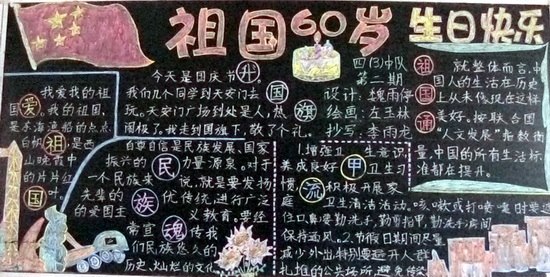 祖国60岁 生日快乐
爱祖国
我爱我的祖
国。我的祖国,
是水海渔船的点点
白帆,是西
山晚霞中
的片片红
叶。
今天是国庆节,
我们几个同学到天安门去
玩。天安门广场到处是人,热
闹极了。我走到国旗下,敬了个礼。
升国旗
四(3)中队
第二期
设计:魏雨倩
绘画:左玉林
抄写:李雨龙
祖国通
就整体而言,中
国人的生活在历史
上从未像现在这样
美好。按联合国
“人文发展”指数衡
量,中国的所有生活标
准都在提升。
民族魂
自尊自信是民族发展、国家
振兴的力量源泉。对于
一个民族来说,就是要发扬
先辈的优传统,进行广泛
的爱国主义教育。要经
常宣传我
们民族悠久的
历史、灿烂的文化
甲流
1.增强卫生意识,
养成良好卫生习
惯,积极开展家
庭卫生清洁活动。咳嗽或打喷嚏时要遮
住口鼻要勤洗手,勤剪指甲,勤洗手房间
保持通风。2.节假日期间尽量
减少外出特别要避开人群
扎堆的公共场所,避免传